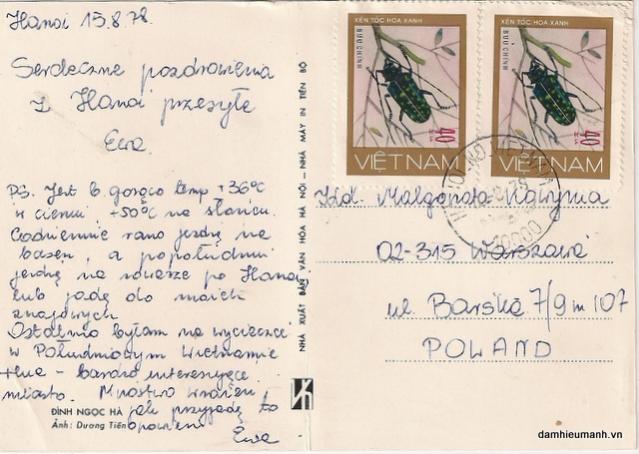 Hanoi 15.8.78.
Serdeczne pozdrowienia
z Hanoi przesyła
Ewa.
PS. Jest b. gorąco temp +36°C
w cieniu, +50°C na słońcu.
Codziennie rano jeżdżę na
basen, a popołudniu
jeżdżę na rowerze po Hanoi
lub jadę do moich
znajomych
Ostatnio byłam na wycieczce
w Południowym Wietnamie
Hue - bardzo interesujące
miasto. Mnóstwo wrażeń,
jak przyjadę to
opowiem
Ewa
ĐÌNH NGỌC HÀ
Ảnh: Dương Tiến
NHÀ XUẤT BẢN VĂN HÓA HÀ NỘI – NHÀ MÁY IN TIẾN BỘ
XÉN TÓC HOA XANH
BƯU CHÍNH
40
XU
VIỆTNAM
XÉN TÓC HOA XANH
BƯU CHÍNH
40
XU
VIỆTNAM
Małgorzata
02-315 Warszawa
ul. Barska 7/9 m 107
POLAND
damhieumanh.vn